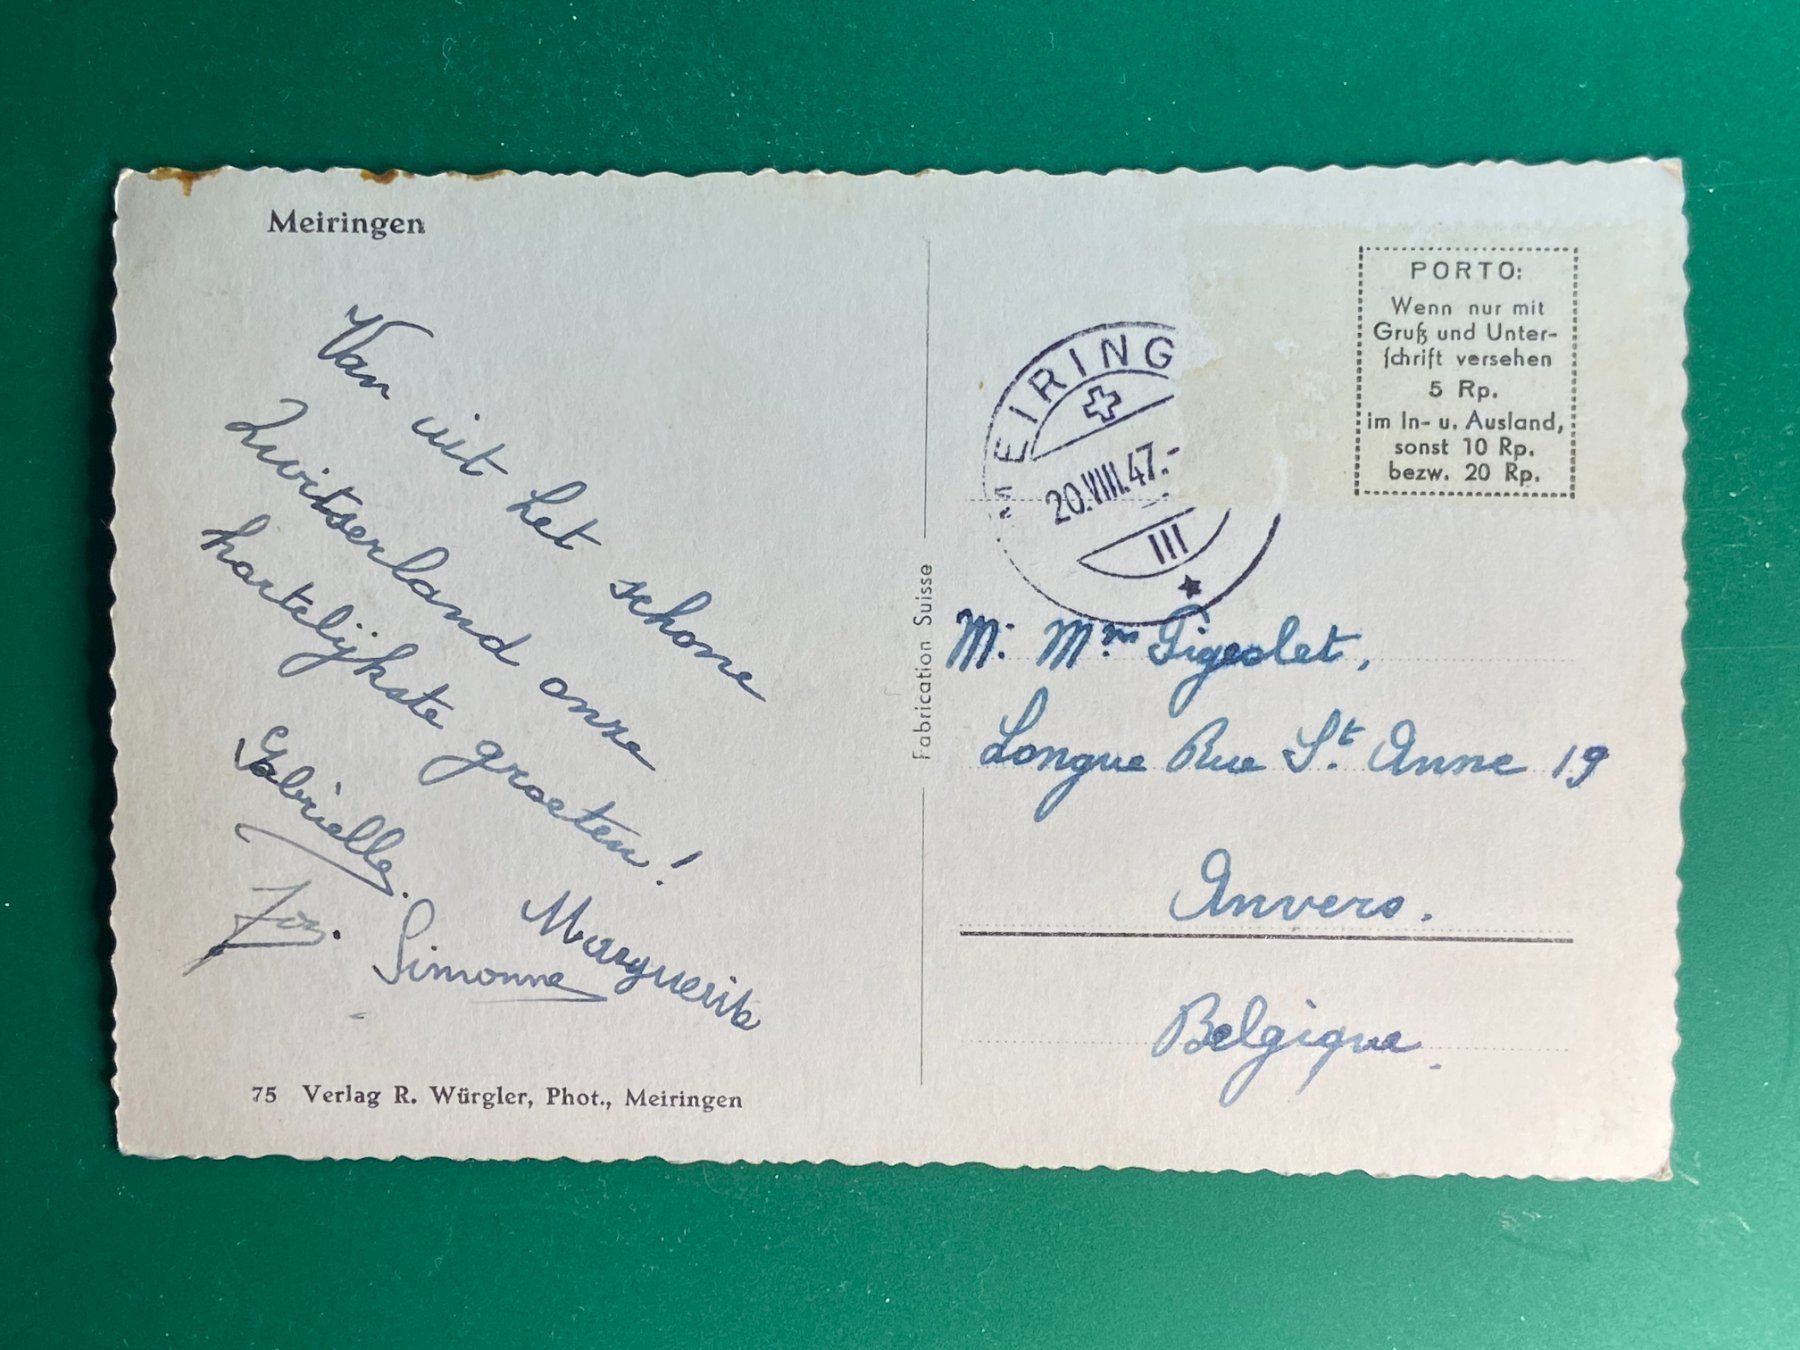 Meiringen
Van uit het schone
Zwitserland onze
hartelijkste groeten!
Gabrielle.
Marguerite
Simonne
75 Verlag R. Würgler, Phot., Meiringen
Fabrication Suisse
MEIRING
20.VIII.47.-
III
PORTO:
Wenn nur mit
Gruß und Unter-
schrift versehen
5 Rp.
im In- u. Ausland,
sonst 10 Rp.
bezw. 20 Rp.
M. Mme Gigeolet,
Longue Rue St. Anne 19
Anvers.
Belgique.